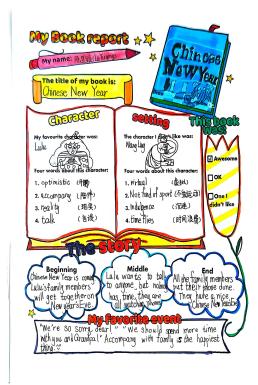 My Book report
My name:
The title of my book is:
Chinese New Year
Chinese
New Year
Character
My favourite character was:
Lulu
Four words about this character:
1. optimistic
2. Accompany
3. reality
4. talk
Setting
The character I like was:
Wang Ling
Four words about this character:
1. virtual
2. Not fond of sport
3. Indulgence
4. time flies
This book
was:
Awesome
OK
One I
didn't like
The Story
Beginning
Chinese New Year is coming
Lulu's family members
will get together on
New Year's Eve.
Middle
Lulu wants to talk
to anyone, but nobody
has time, they are
all watching phones
End
All the family members
put their phone down.
They have a nice
Chinese New Year
My favorite event
"We're so sorry, dear!" "We should spend more time
with you and Grandpa!" Accompany with family is the happiest
thing.